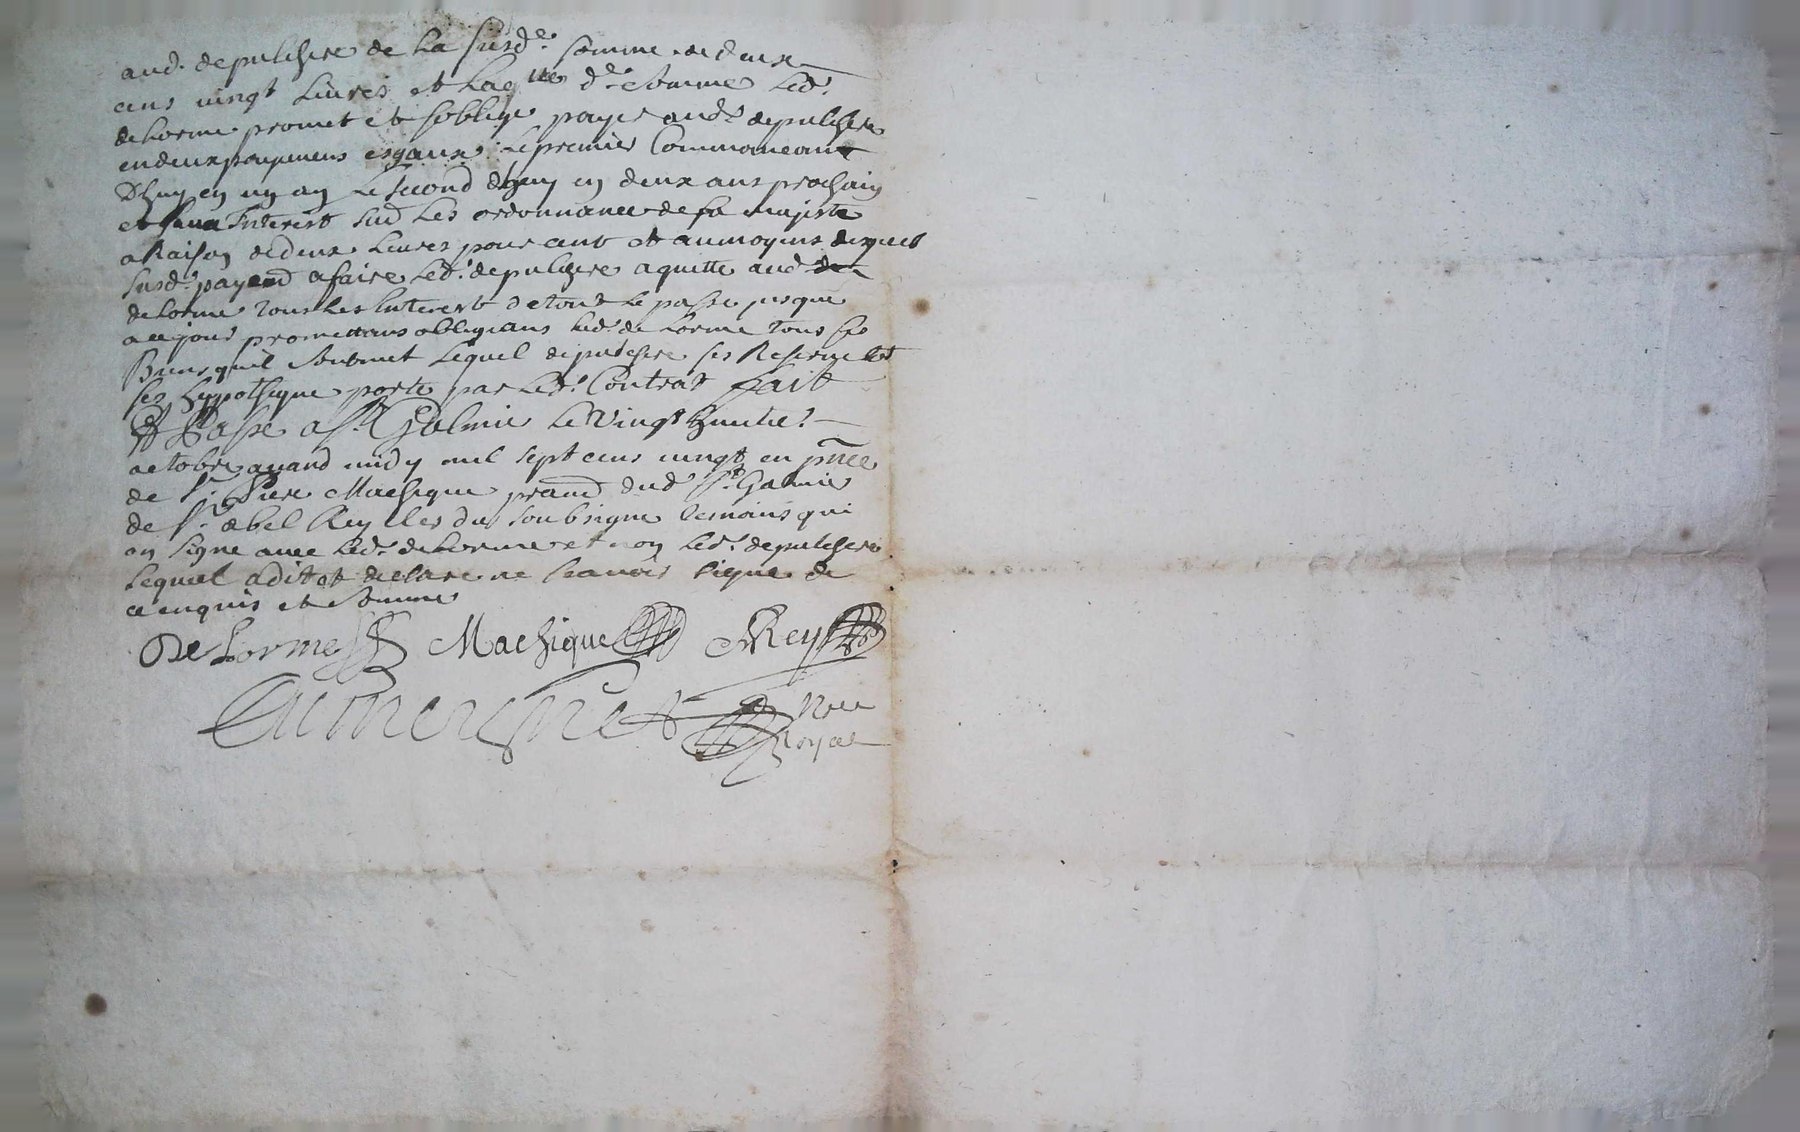 aud. depulchere de la susde. somme de deux
cens vingt livres et laqlle de somme led.
delorme promet et soblige payer aud. depulchere
en deux payemens esgaux le premier Commancant
Dhuy en un an le second dhuy en deux ans prochain
et Interest suiv les ordonnance de sa majeste
a Raison de deux livres pour cent et au moyens desquels
susd. payend a faire led. depulchere aquitte aud
delorme tous les Interest de tout le passe jusque
a ce jour promettans obligeans led. de lorme tous ses
Biens quil soubmet lequel depulchere ses Reserve
ses hypotheque porte par led. Contrat fait
Et Passe a St Galmie le vingt huitie.
octobre avand midy mil sept cens vingt en pnce
de Sr. Piere Machique prand dud St. Galmie
de Sr. abel Rey Cler du soubsigne temoins qui
on signe avec led. de Lorme et non led. depulchere
lequel a dit et declare ne scavoir signe de
ce enquis et somme
De Lorme Machique Rey
Nore
Royal